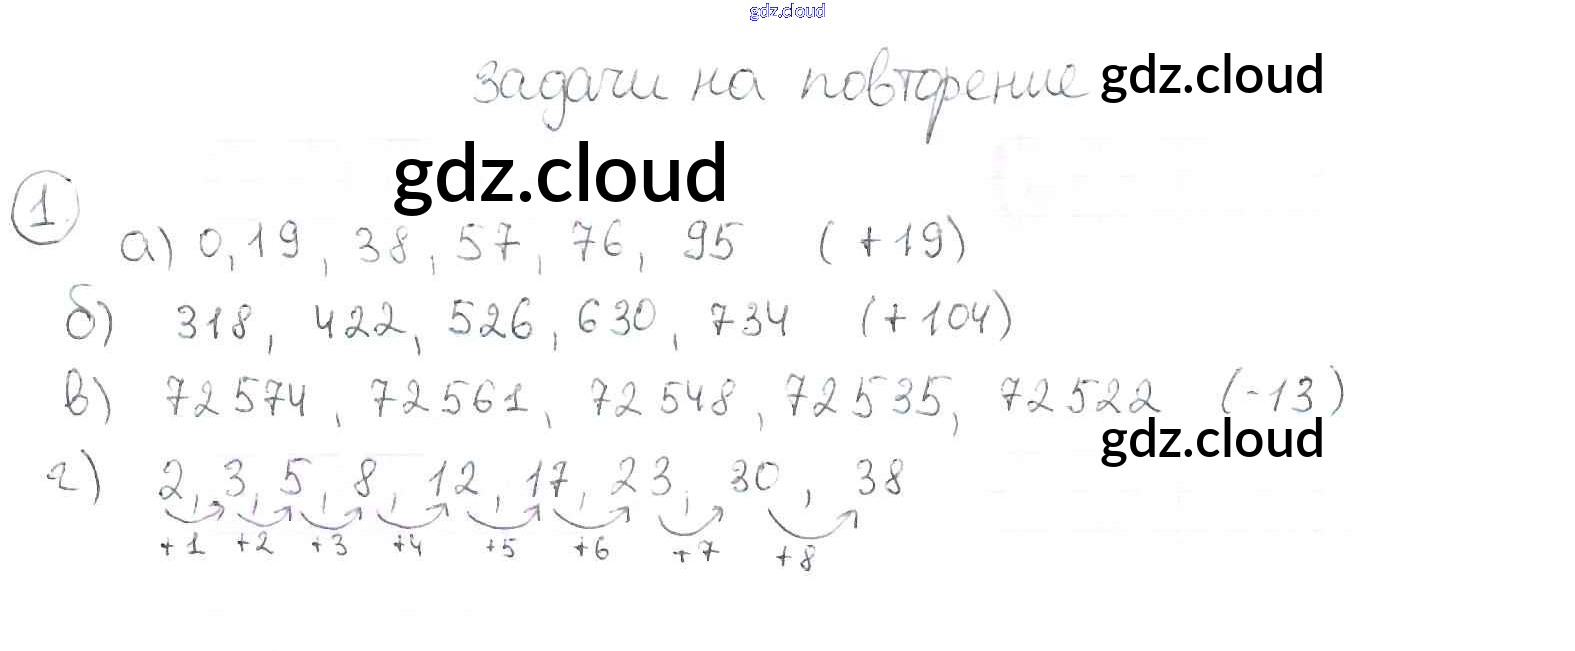 gdz.cloud
задачи на повторение gdz.cloud
gdz.cloud
1
а) 0, 19, 38, 57, 76, 95 (+19)
б) 318, 422, 526, 630, 734 (+104)
в) 72574, 72561, 72548, 72535, 72522 (-13)
gdz.cloud
г) 2, 3, 5, 8, 12, 17, 23, 30, 38
+1 +2 +3 +4 +5 +6 +7 +8